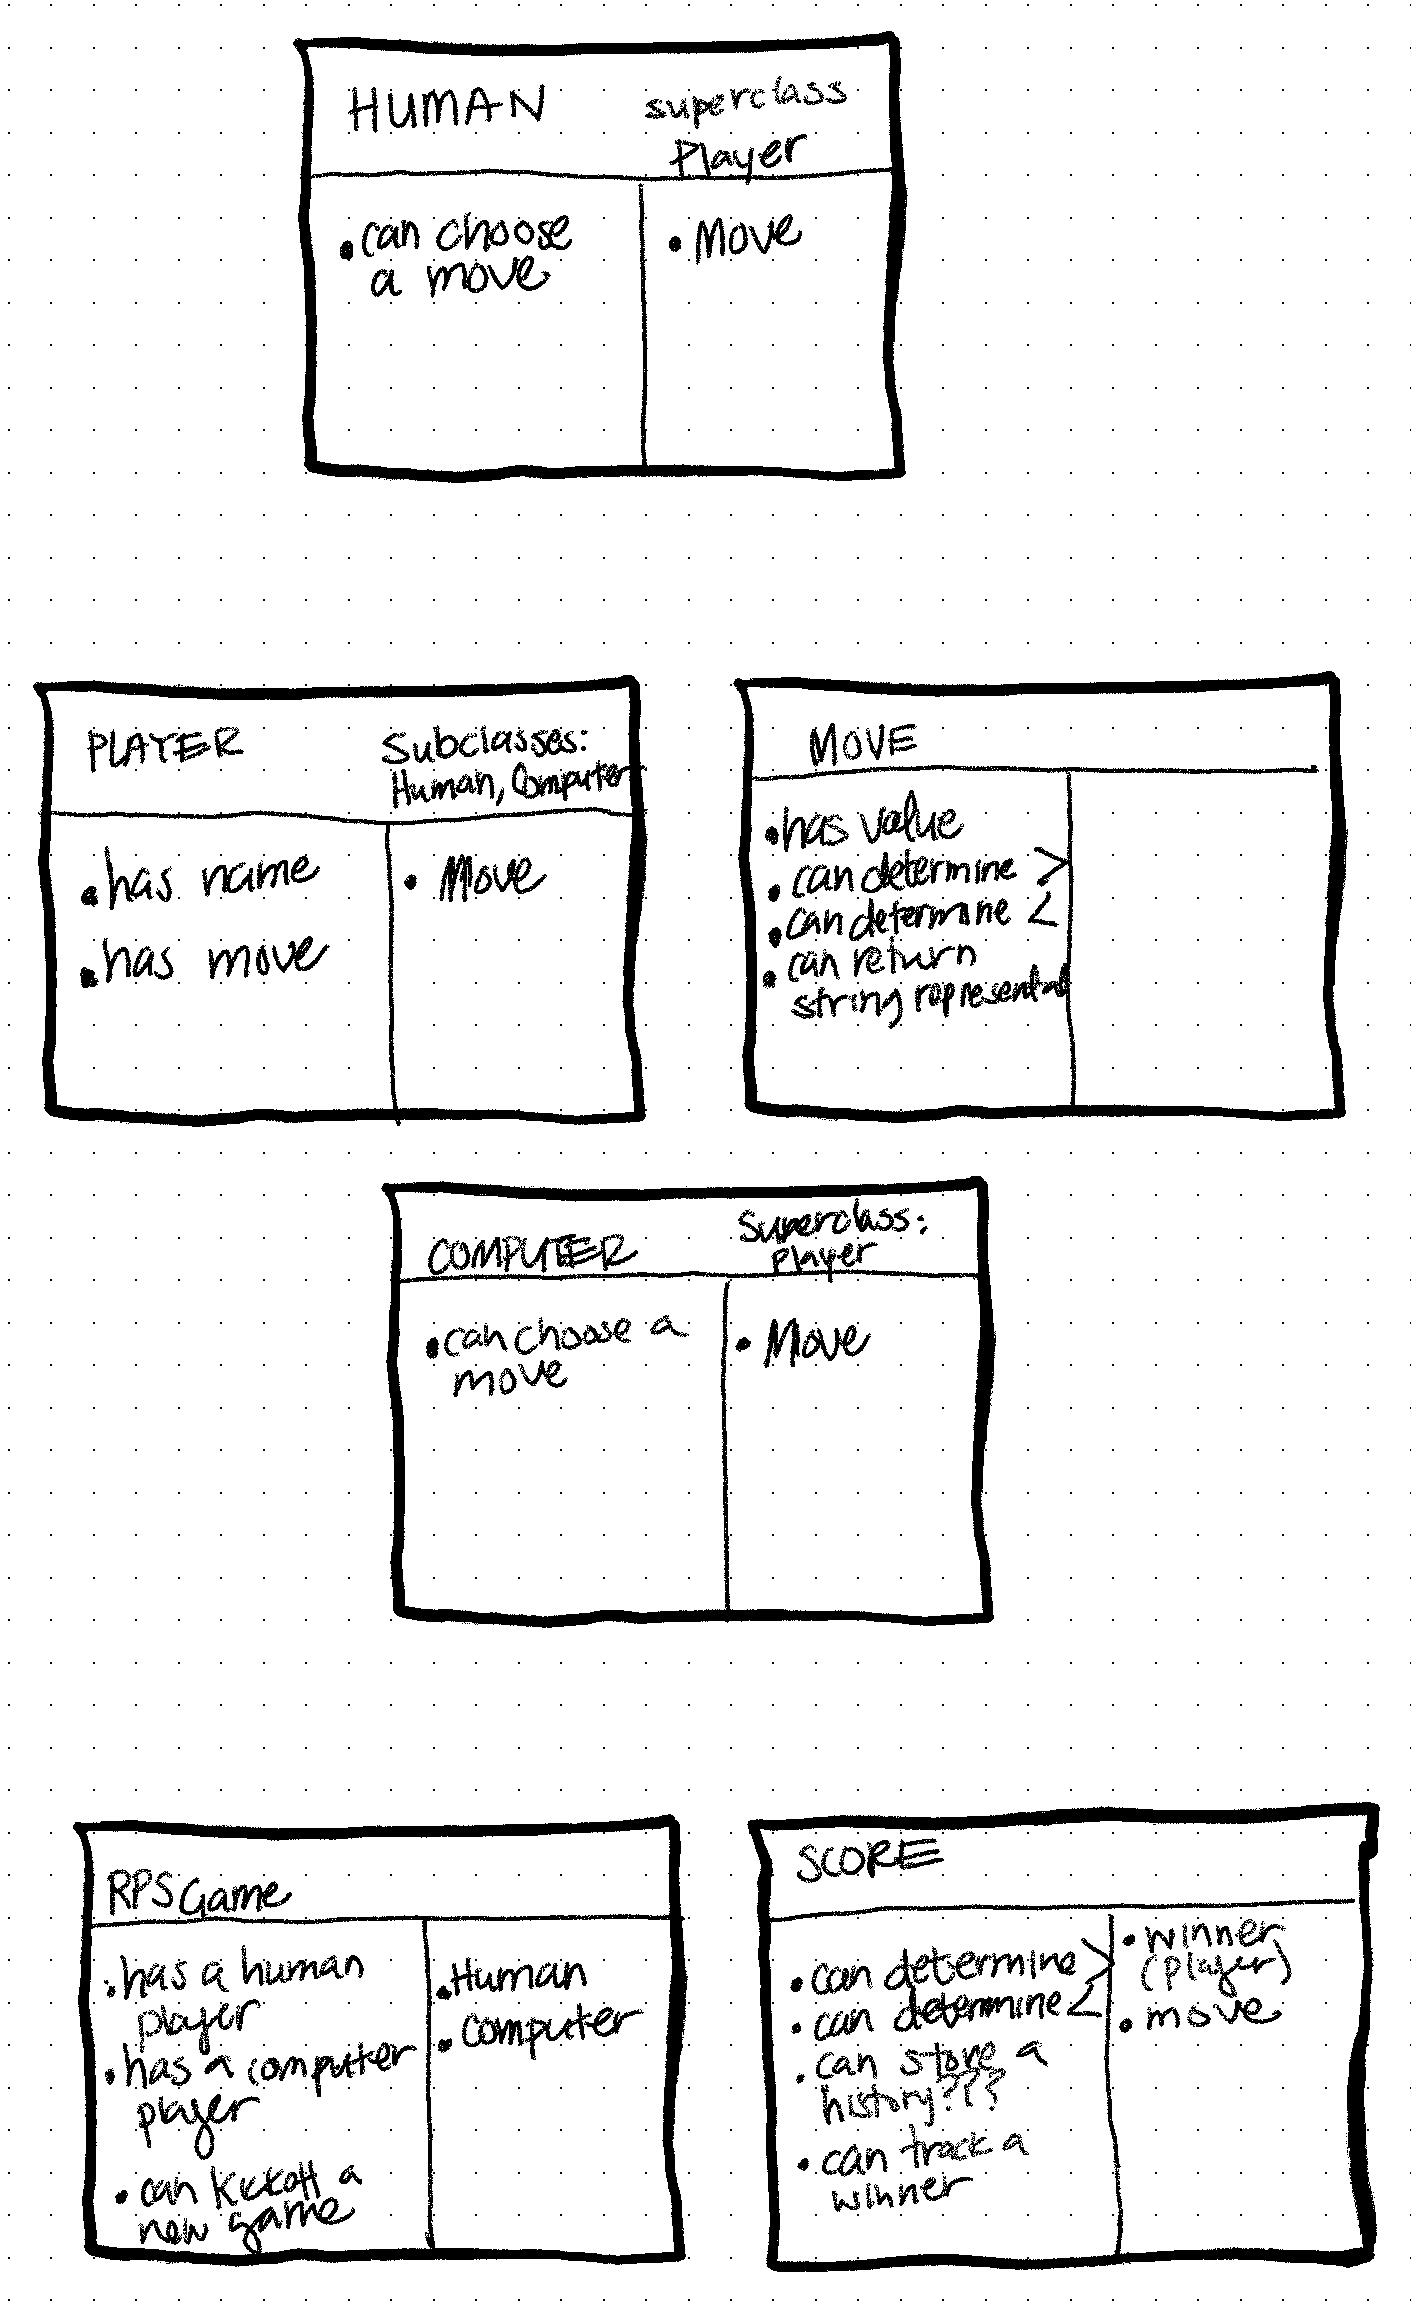 HUMAN superclass
Player
• can choose
a move
• Move
PLAYER Subclasses:
Human, Computer
• has name
• has move
• Move
MOVE
• has value
• can determine >
• can determine <
• can return
string representat
COMPUTER Superclass:
Player
• can choose a
move
• Move
RPSGame
• has a human
player
• has a computer
player
• can kickoff a
new game
• Human
• Computer
SCORE
• can determine >
• can determine <
• can store a
history???
• can track a
winner
• winner
(player)
• move